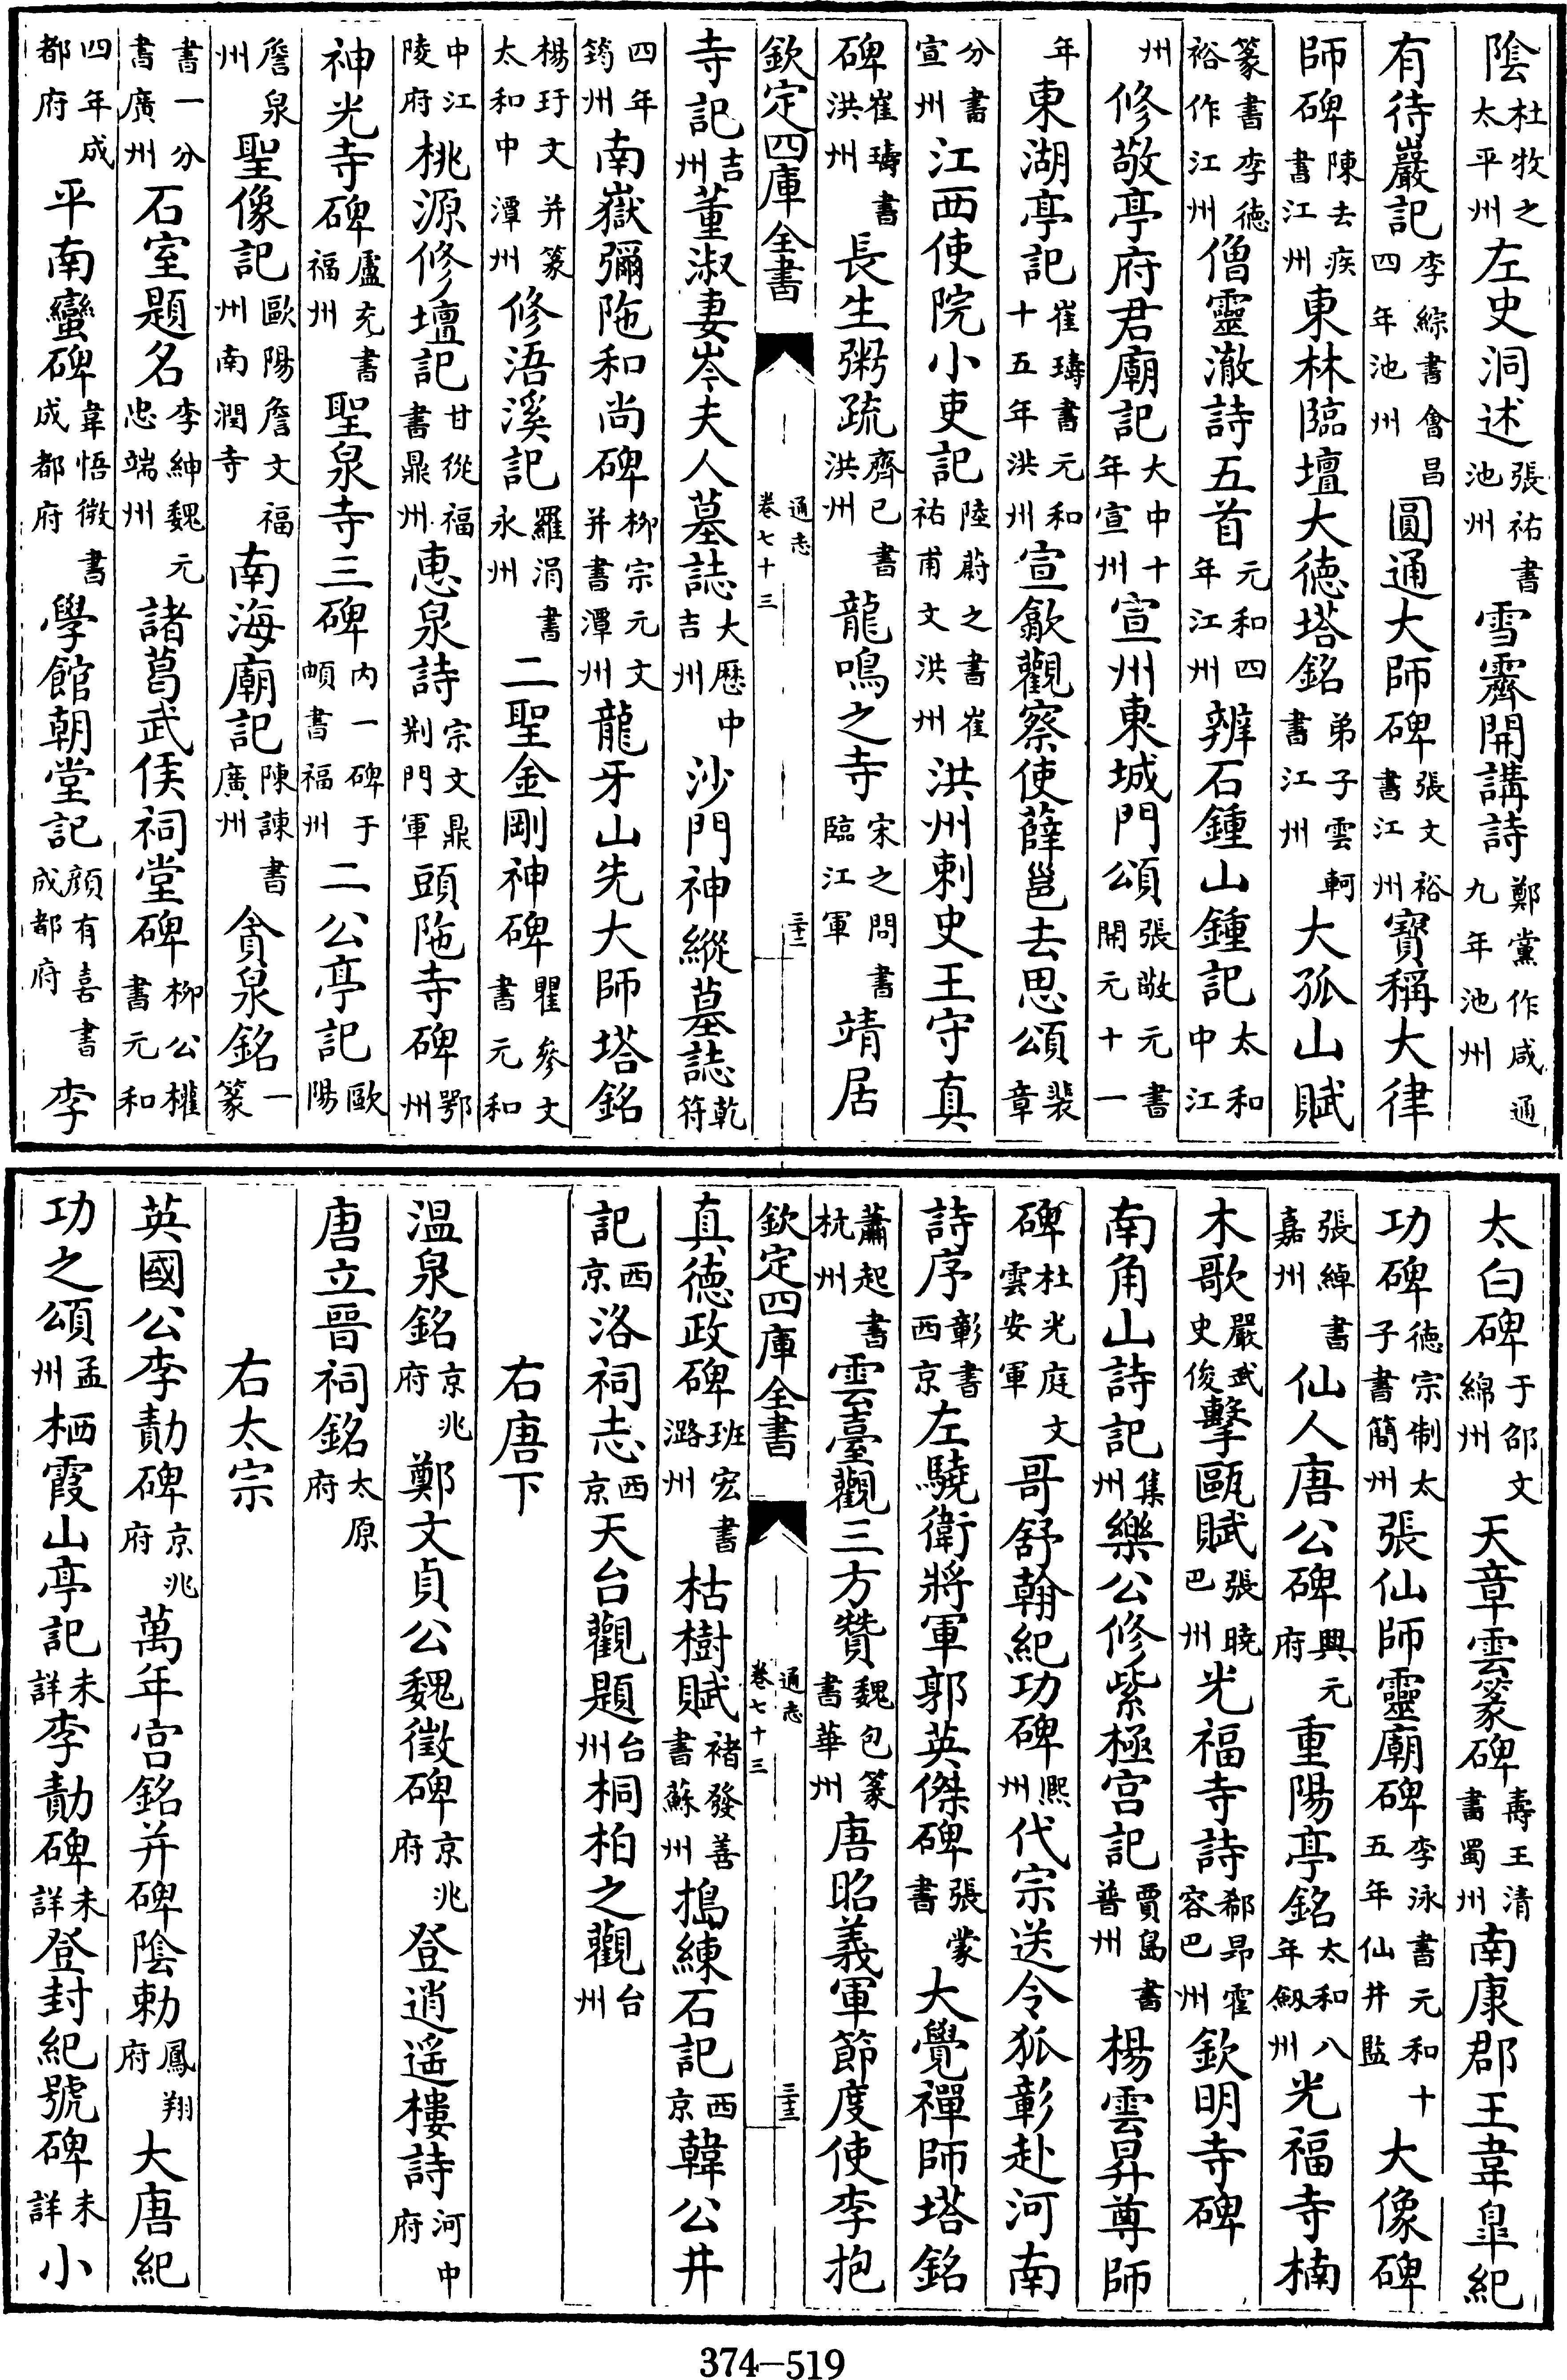 陰杜牧之太平州左史洞述張祐書池州雪霽開講詩鄭黨作咸通九年池州
有待巖記李綜書會昌四年池州圓通大師碑張文裕書江州寶稱大律
師碑陳去疾書江州東林臨壇大德塔銘弟子雲軻書江州大孤山賦
篆書李德裕作江州僧靈澈詩五首元和四年江州辨石鍾山鍾記太和中江
州修敬亭府君廟記大中十年宣州宣州東城門頌張敬元書開元十一
年東湖亭記崔璹書元和十五年洪州宣歙觀察使薛邕去思頌裴章
分書宣州江西使院小吏記陸蔚之書崔祐甫文洪州洪州刺史王守真
碑崔璹書洪州長生粥疏齊已書洪州龍鳴之寺宋之問書臨江軍靖居
欽定四庫全書 通志卷七十三 三十二
寺記吉州董淑妻岑夫人墓誌大歷中吉州沙門神縱墓誌乾符
四年筠州南嶽彌陁和尚碑柳宗元文并書潭州龍牙山先大師塔銘
楊玗文并篆太和中潭州修浯溪記羅涓書永州二聖金剛神碑瞿參文書元和
中江陵府桃源修壇記甘從福書鼎州惠泉詩宗文鼎荆門軍頭陁寺碑鄂州
神光寺碑盧充書福州聖泉寺三碑內一碑于頔書福州二公亭記歐陽
詹泉州聖像記歐陽詹文福州南澗寺南海廟記陳諫書廣州貪泉銘一篆
書一分書廣州石室題名李紳魏元忠端州諸葛武侯祠堂碑柳公權書元和
四年成都府平南蠻碑韋悟微書成都府學館朝堂記顔有喜書成都府李
太白碑于邵文綿州天章雲篆碑壽王清書蜀州南康郡王韋臯紀
功碑德宗制太子書簡州張仙師靈廟碑李泳書元和十五年仙井監大像碑
張綽書嘉州仙人唐公碑興元府重陽亭銘太和八年劒州光福寺楠
木歌嚴武史俊擊甌賦張曉巴州光福寺詩郗昂霍容巴州欽明寺碑
南角山詩記集州樂公修紫極宮記賈島書普州楊雲昇尊師
碑杜光庭文雲安軍哥舒翰紀功碑熙州代宗送令狐彰赴河南
詩序彰書西京左驍衛將軍郭英傑碑張蒙書大覺禪師塔銘
蕭起書杭州雲臺觀三方贊魏包篆書華州唐昭義軍節度使李抱
欽定四庫全書 通志卷七十三 三十三
真德政碑班宏書潞州枯樹賦褚發善書蘇州搗練石記西京韓公井
記西京洛祠志西京天台觀題台州桐柏之觀台州
右唐下
温泉銘京兆府鄭文貞公魏徵碑京兆府登逍遥樓詩河中府
唐立晉祠銘太原府
右太宗
英國公李勣碑京兆府萬年宮銘并碑陰勅鳳翔府大唐紀
功之頌孟州栖霞山亭記未詳李勣碑未詳登封紀號碑未詳小
374—519